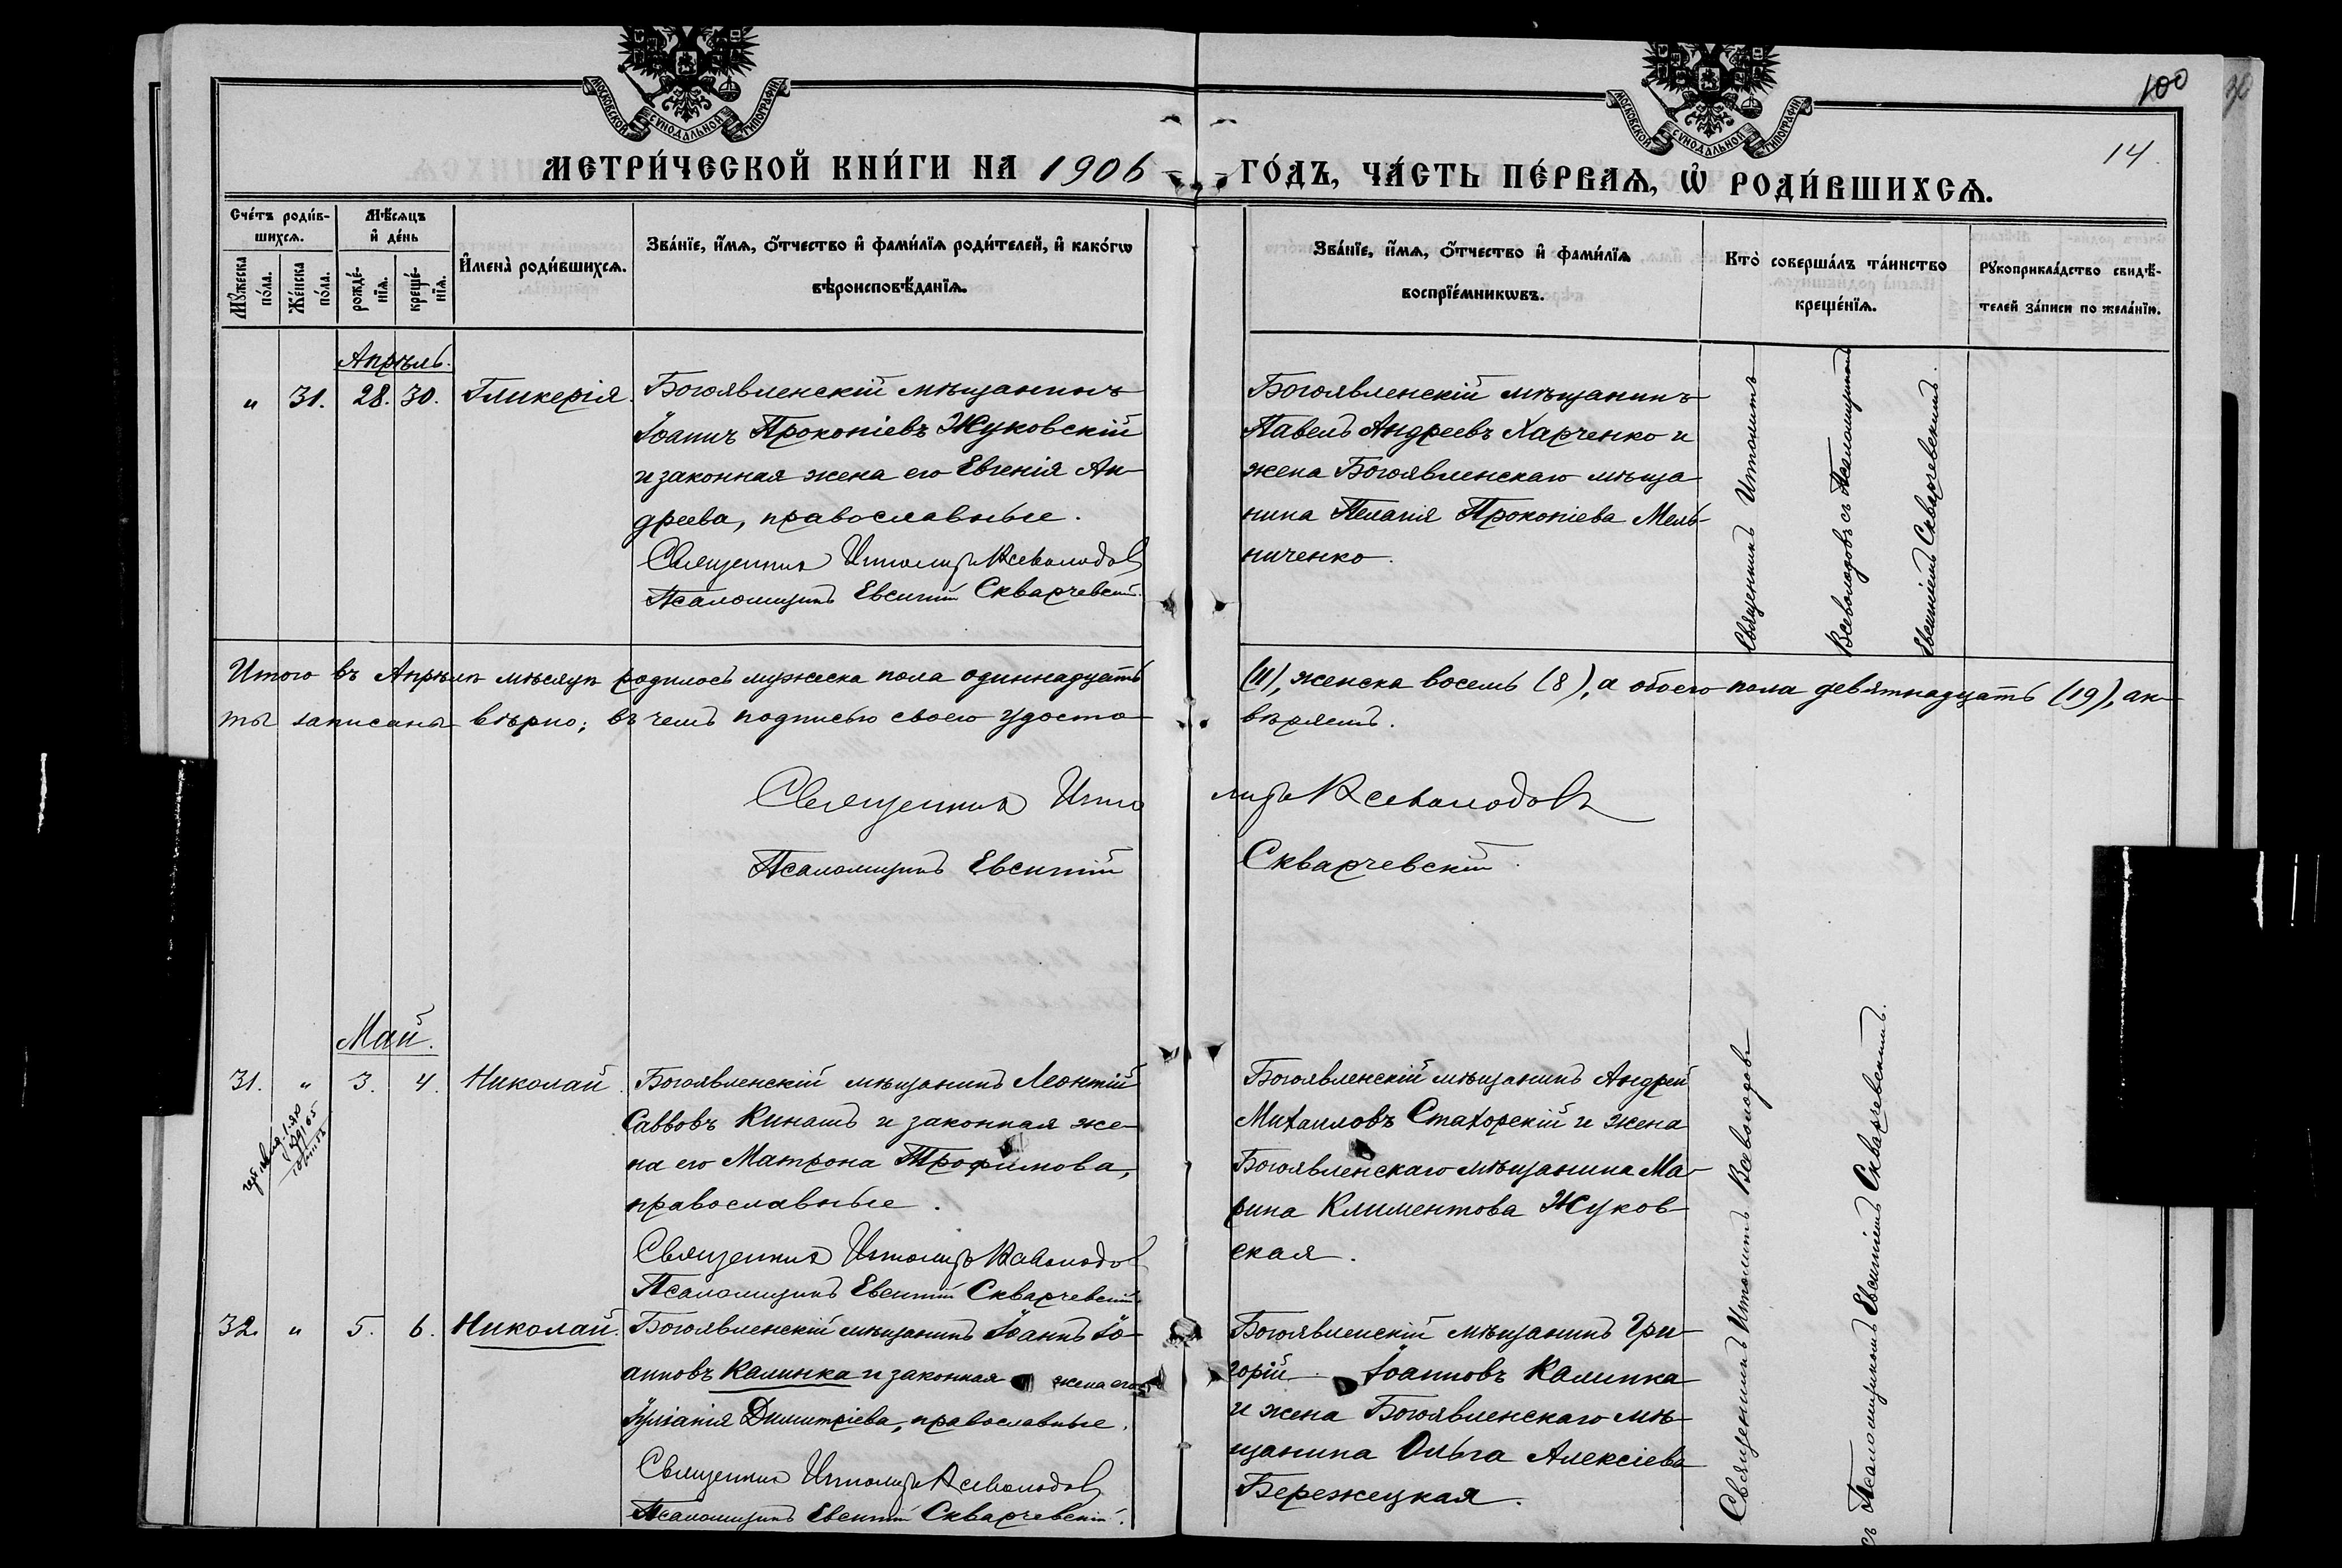 МОСКОВСКОЙ СѴНОДАЛЬНОЙ ТИПОГРАФІИ
МОСКОВСКОЙ СѴНОДАЛЬНОЙ ТИПОГРАФІИ
100
14.
МЕТРИ́ЧЕСКОЙ КНИ́ГИ НА 1906 ГО́ДЪ, ЧА́СТЬ ПЕ́РВАѦ, Ѡ РОДИ́ВШИХСѦ.
Сче́тъ роди́в-
шихсѧ.
Мꙋ́жеска
по́ла.
Же́нска
по́ла.
Мѣ́сѧцъ
и҆ де́нь
рожде́-
нїѧ.
креще́-
нїѧ.
И҆мена̀ роди́вшихсѧ.
Зва́нїе, и҆́мѧ, ѻ҆́тчество и҆ фами́лїѧ роди́телей, и҆ како́гѡ
вѣроисповѣ́данїѧ.
Зва́нїе, и҆́мѧ, ѻ҆́тчество и҆ фами́лїѧ
воспрїе́мникѡвъ.
Кто̀ соверша́лъ та́инство
креще́нїѧ.
Рꙋкоприкла́дство свидѣ́-
телей за́писи по жела́нїю.
Апрѣль.
" 31. 28. 30. Гликерія.
Богоявленскій мѣщанинъ
Іоаннъ Прокопіевъ Жуковскій
и законная жена его Евгенія Ан-
дреева, православные.
Священник Ипполитъ Всеволодов
Псаломщикъ Евсигній Скварчевскій.
Богоявленскій мѣщанинъ
Павелъ Андреевъ Харченко и
жена Богоявленскаго мѣща
нина Пелагія Прокопіева Мель-
ниченко.
Священникъ Ипполитъ
Всеволодовъ съ Псаломщикомъ
Евсигніемъ Скварчевскимъ.
Итого въ Апрѣлѣ мѣсяцѣ родилось мужеска пола одиннадцать (11), женска восемь (8), а обоего пола девятнадцать (19), ак-
ты записаны вѣрно; въ чемъ подписью своею удосто-
вѣряемъ.
Священник Ипполитъ Всеволодовъ
Псаломщикъ Евсигній Скварчевскій.
Май.
31. " 3. 4. Николай.
Богоявленскій мѣщанинъ Леонтій
Саввовъ Кинашъ и законная же-
на его Матрона Трофимова,
православные.
Священник Ипполитъ Всеволодов
Псаломщикъ Евсигній Скварчевскій.
Богоявленскій мѣщанинъ Андрей
Михаиловъ Стахорскій и жена
Богоявленскаго мѣщанина Ма-
рина Климентова Жуков-
ская.
32. " 5. 6. Николай.
Богоявленскій мѣщанинъ Іоаннъ Іо-
анновъ Калинка и законная жена его
Іуліанія Димитріева, православные.
Священник Ипполитъ Всеволодов
Псаломщикъ Евсигній Скварчевскій.
Богоявленскій мѣщанинъ Гри-
горій Іоанновъ Калинка
и жена Богоявленскаго мѣ-
щанина Ольга Алексіева
Бережецкая.
Священникъ Ипполитъ Всеволодовъ
съ Псаломщикомъ Евсигніемъ Скварчевскимъ.